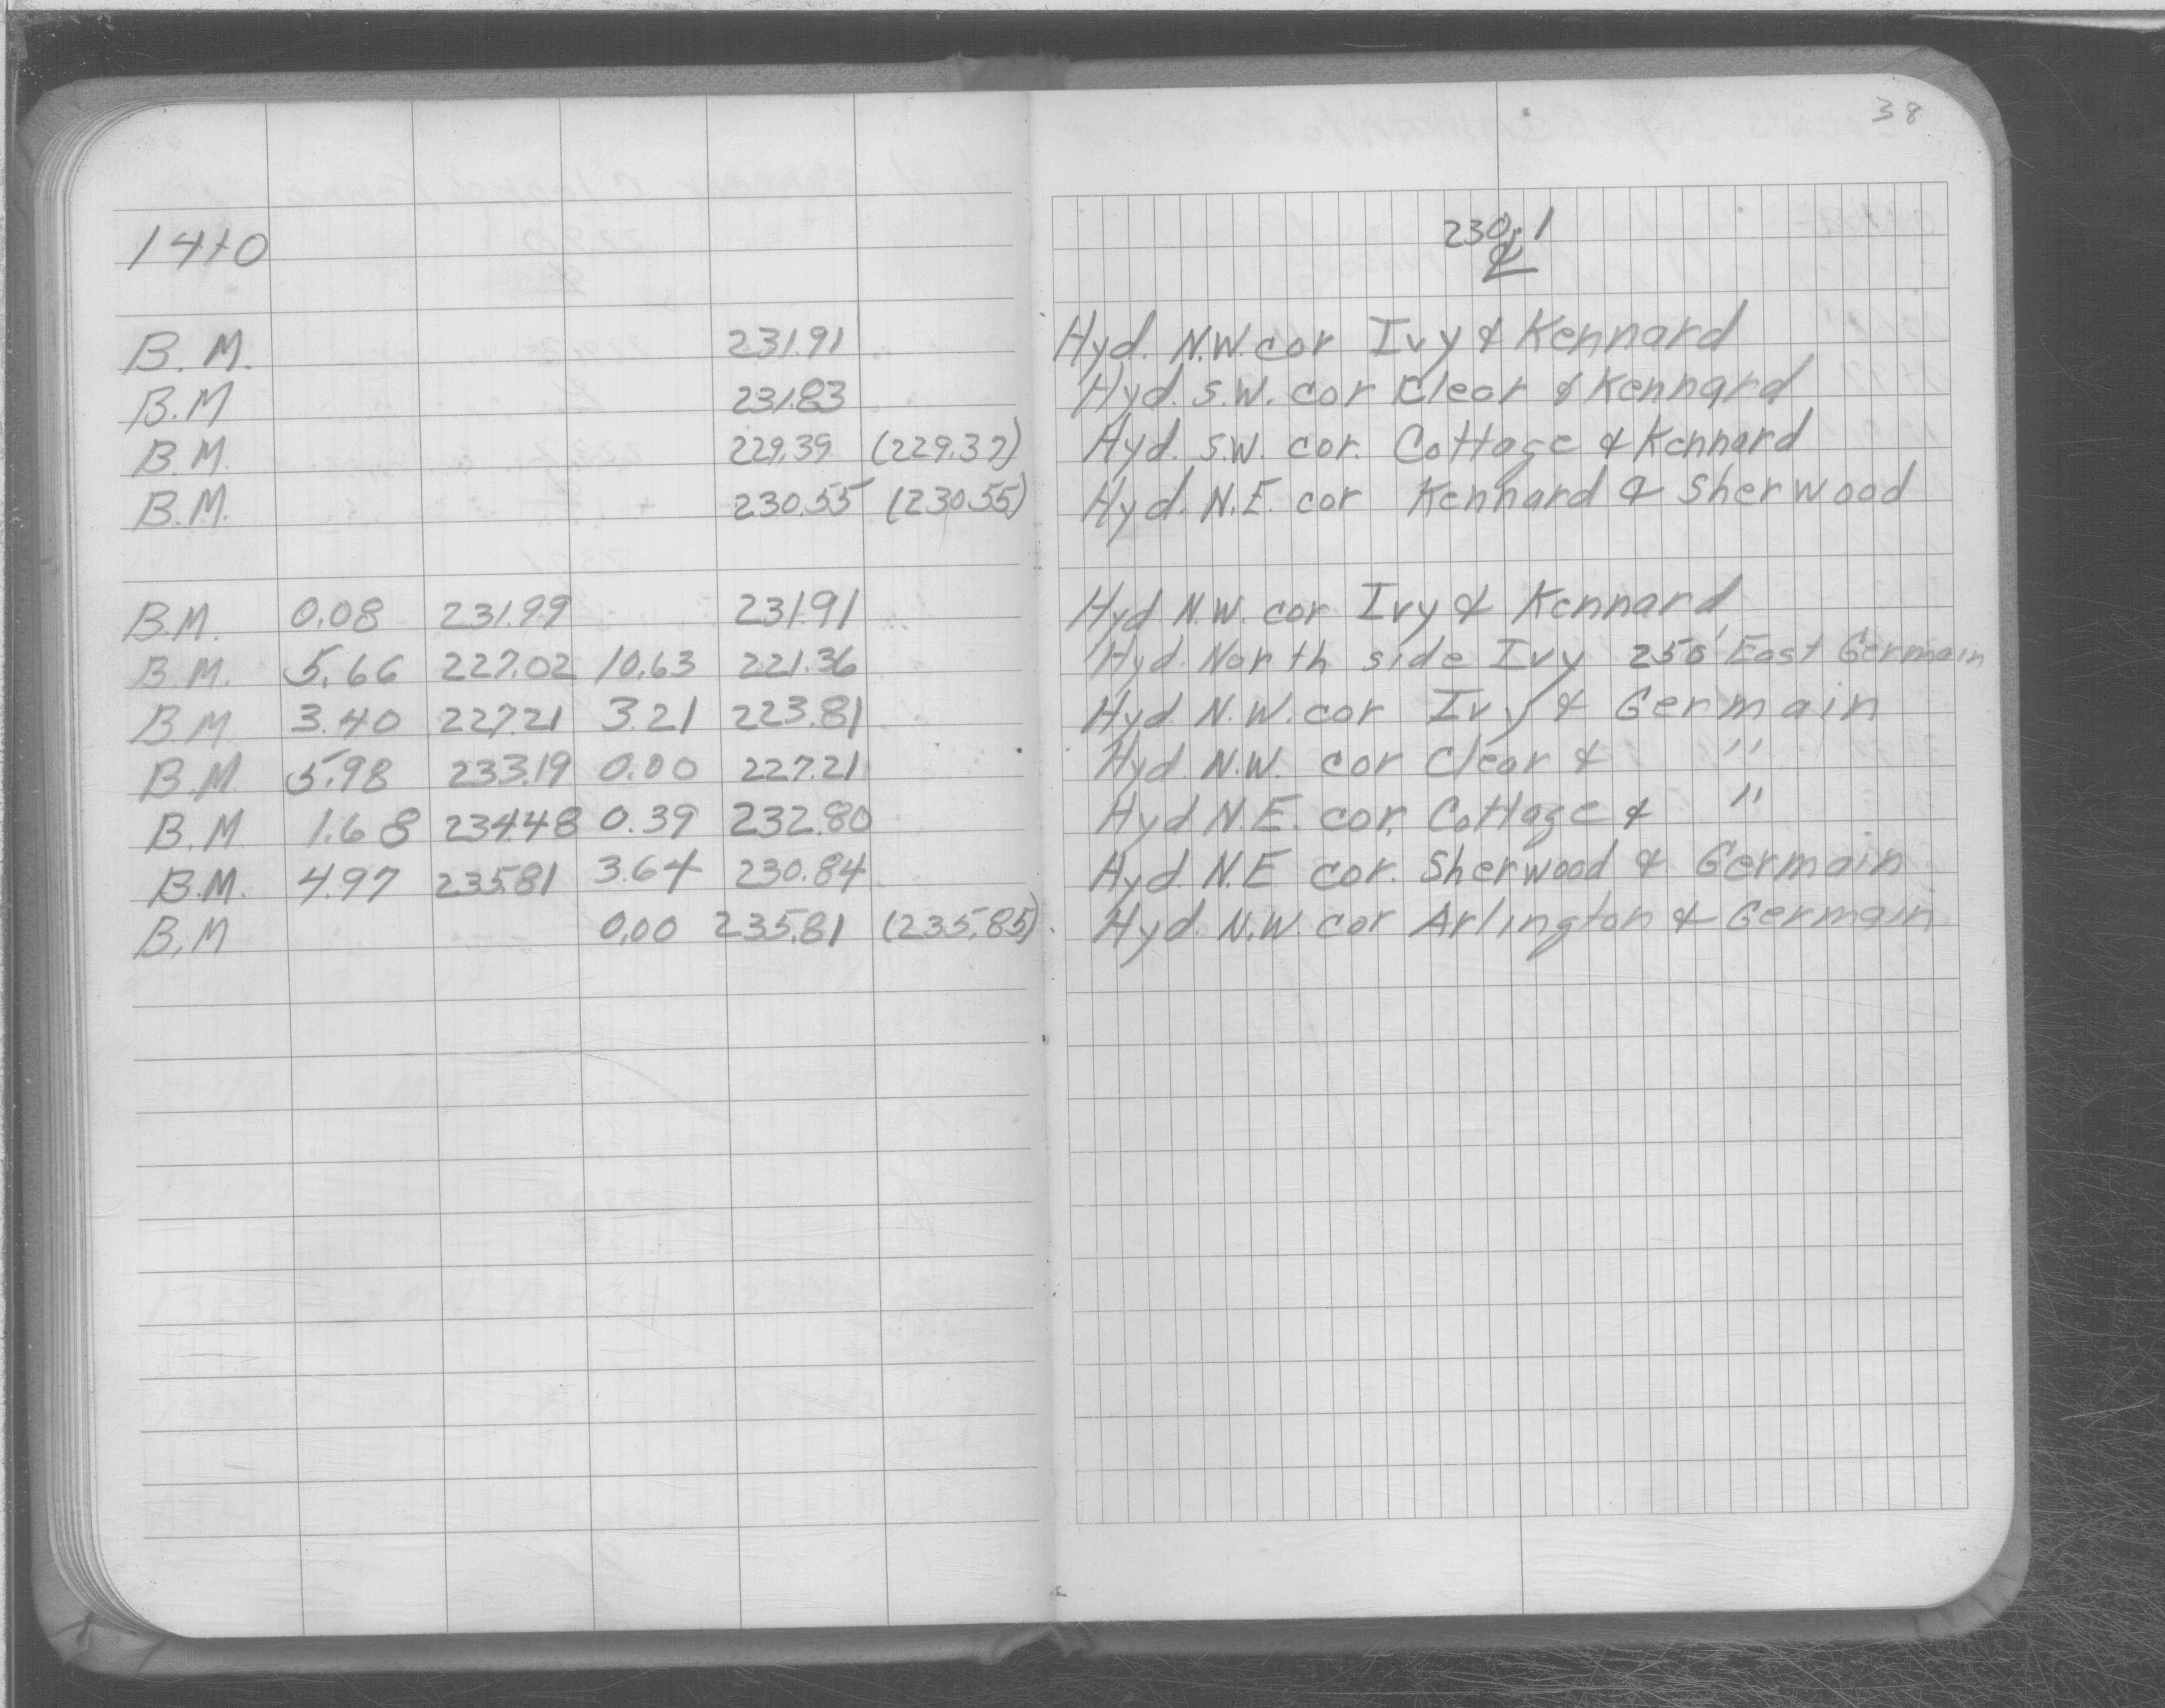 38
14+0 230.1
℄
B.M. 231.91 Hyd. N.W. cor Ivy & Kennard
B.M 231.83 Hyd. S.W. cor Clear & Kennard
B.M. 229.39 (229.37) Hyd. S.W. cor. Cottage & Kennard
B.M. 230.55 (230.55) Hyd. N.E. cor Kennard & Sherwood
B.M. 0.08 231.99 231.91 Hyd N.W. cor Ivy & Kennard
B.M. 5.66 227.02 10.63 221.36 Hyd. North side Ivy 250' East Germain
B.M 3.40 227.21 3.21 223.81 Hyd. N.W. cor Ivy & Germain
B.M. 5.98 233.19 0.00 227.21 Hyd. N.W. cor Clear & "
B.M. 1.68 234.48 0.39 232.80 Hyd N.E. cor. Cottage & "
B.M. 4.97 235.81 3.64 230.84 Hyd. N.E cor. Sherwood & Germain
B.M 0.00 235.81 (235.85) Hyd. N.W. cor Arlington & Germain